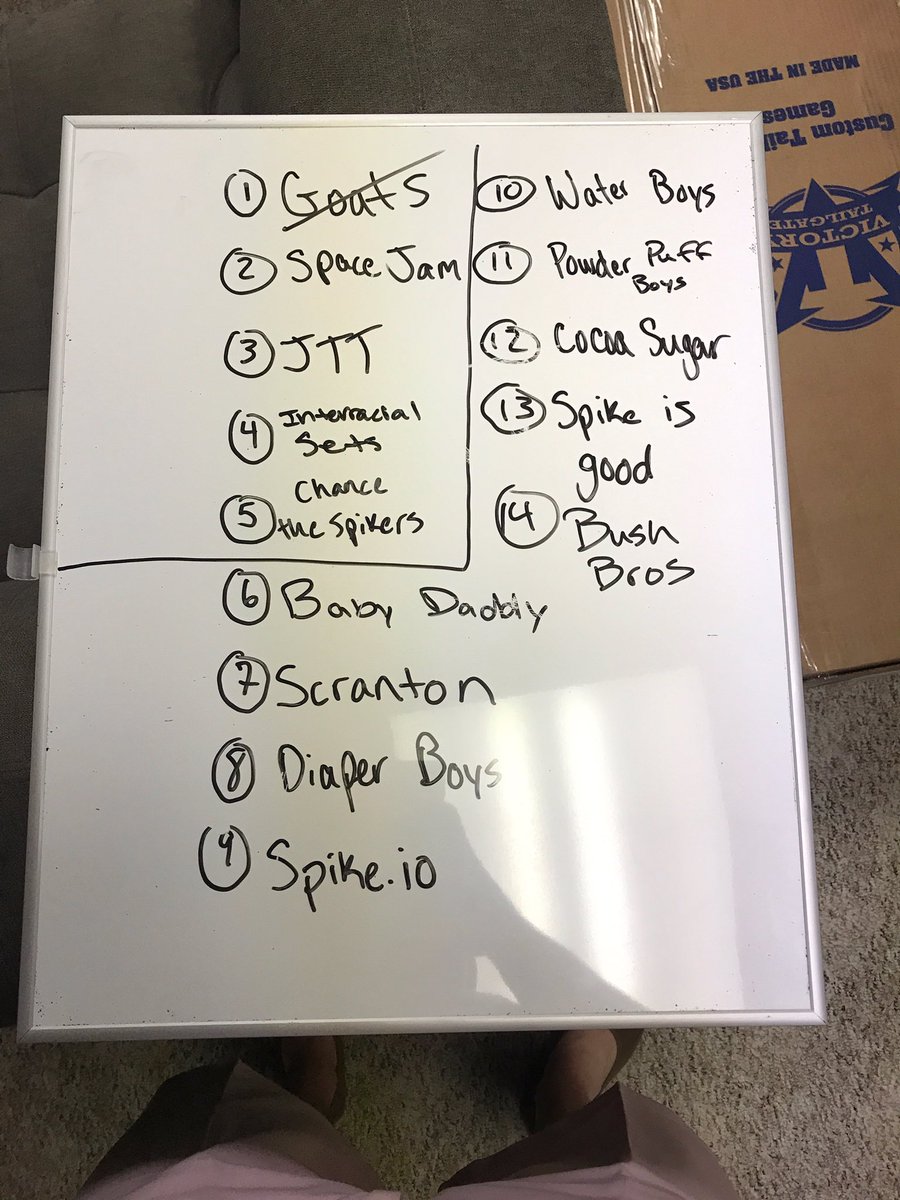 ① Goats
② Space Jam
③ JTT
④ Interracial
Sets
⑤ Chance
the Spikers
⑥ Baby Daddy
⑦ Scranton
⑧ Diaper Boys
⑨ Spike.io
⑩ Water Boys
⑪ Powder Puff
Boys
⑫ Cocoa Sugar
⑬ Spike is
good
⑭ Bush
Bros
MADE IN THE USA
Custom Tail
Games
VICTORY
TAILGATE